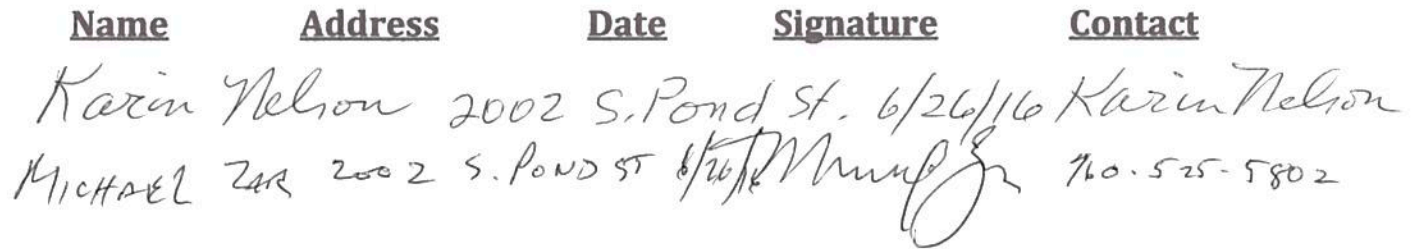 Name Address Date Signature Contact
Karin Nelson 2002 S. Pond St. 6/26/16 Karin Nelson
MICHAEL ZAR 2002 S. POND ST 6/26/16 760.525.5802